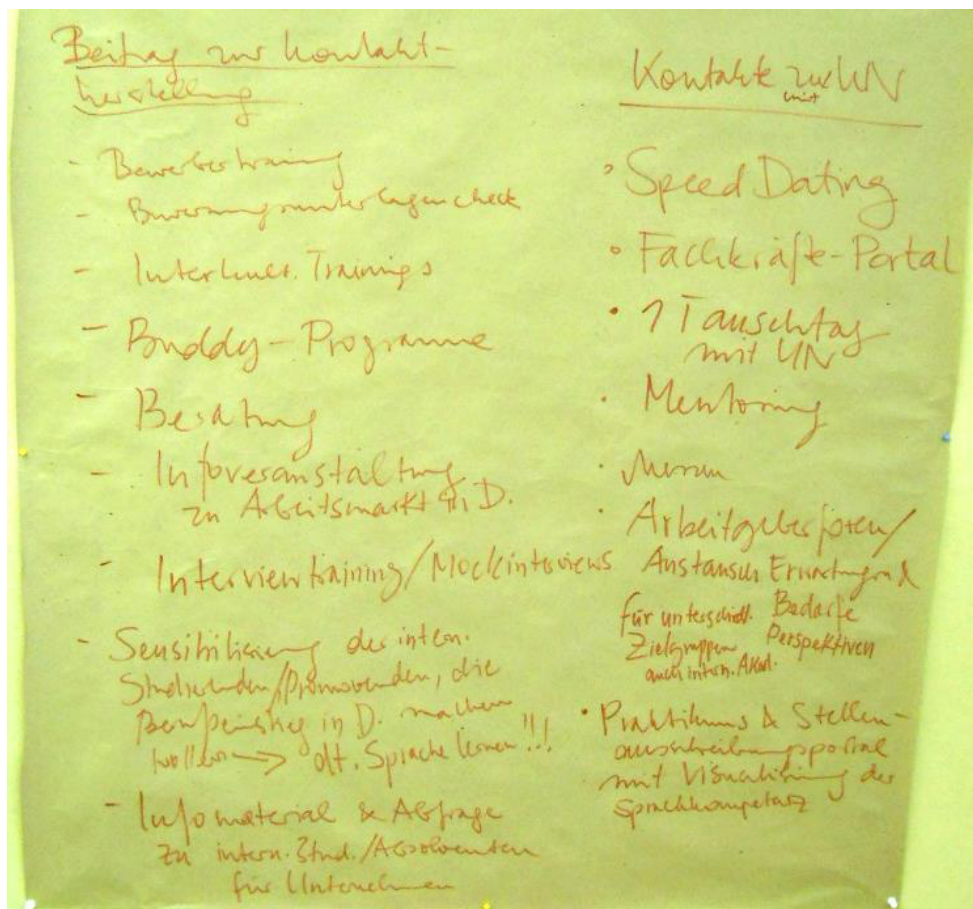 Beitrag zur Kontakt-
herstellung
- Bewerbertraining
- Bewerbungsunterlagencheck
- Interkult. Trainings
- Buddy-Programme
- Beratung
- Infoveranstaltung
zu Arbeitsmarkt in D.
- Interviewtraining/Mockinterviews
- Sensibilisierung der intern.
Studierenden/Promovenden, die
Berufseinstieg in D. machen
wollen → dt. Sprache lernen!!!
- Infomaterial & Abfrage
zu intern. Stud./Absolventen
für Unternehmen
Kontakte zu UN
mit
• Speed Dating
• Fachkräfte-Portal
• 1 Tauschtag
mit UN
• Mentoring
• Messen
• Arbeitgeberforen/
Austausch Erwartungen &
Bedarfe
Perspektiven
für unterschiedl.
Zielgruppen
auch intern. Akad.
• Praktikums & Stellen-
ausschreibungsportal
mit Visualisierung der
Sprachkompetenz